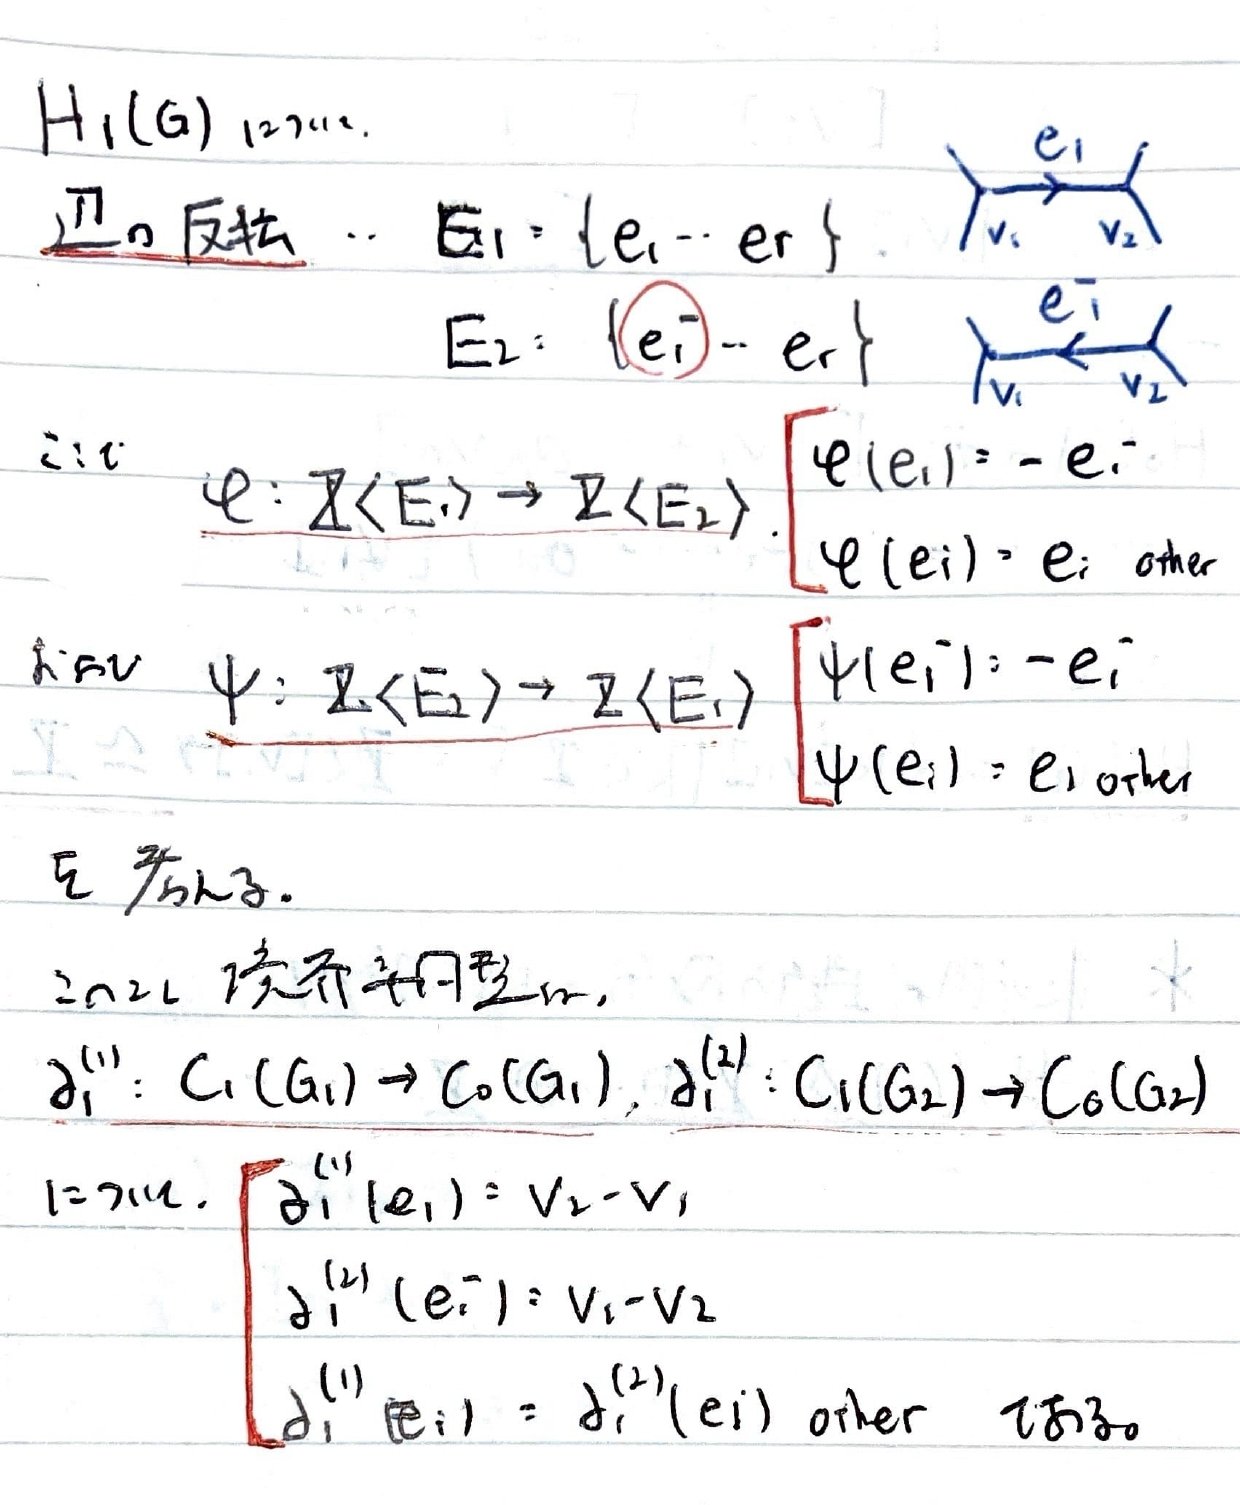 H₁(G) について.
辺の反転 ‥ E₁ = {e₁ ‥ er}
e₁
v₁ v₂
E₂ = {e₁⁻ ‥ er}
e₁⁻
v₁ v₂
ここで φ : ℤ<E₁> → ℤ<E₂>. φ(e₁) = -e₁⁻
φ(ei) = ei other
および ψ : ℤ<E₂> → ℤ<E₁> ψ(e₁⁻) = -e₁⁻
ψ(ei) = ei other
を 考える.
このとき 境界準同型は,
∂₁⁽¹⁾ : C₁(G₁) → C₀(G₁), ∂₁⁽²⁾ : C₁(G₂) → C₀(G₂)
について. ∂₁⁽¹⁾(e₁) = v₂ - v₁
∂₁⁽²⁾(e₁⁻) = v₁ - v₂
∂₁⁽¹⁾(ei) = ∂₁⁽²⁾(ei) other である。